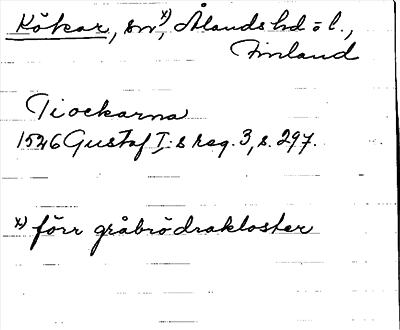 Kökar, sn x), Ålands hd o l.,
Finland
Tiockarna
1526 Gustaf I:s reg. 3, s. 297.
x) förr gråbrödrakloster